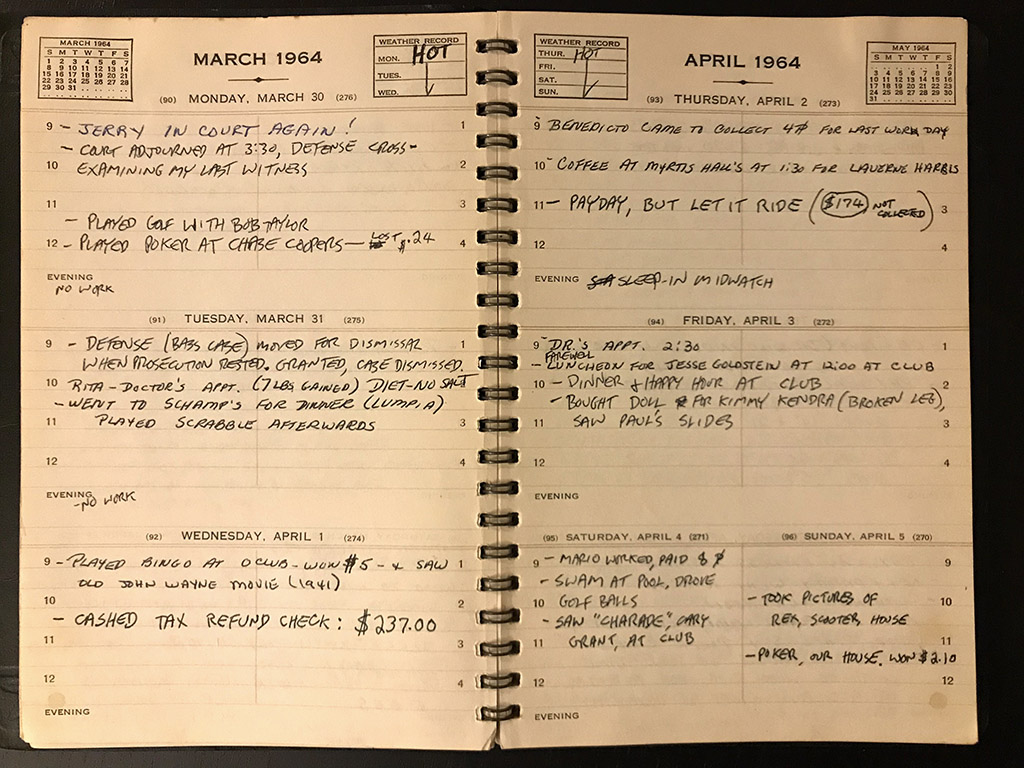 MARCH 1964
S M T W T F S
1 2 3 4 5 6 7
8 9 10 11 12 13 14
15 16 17 18 19 20 21
22 23 24 25 26 27 28
29 30 31 . . . .
MARCH 1964
WEATHER RECORD
MON. HOT
TUES.
WED.
(90) MONDAY, MARCH 30 (276)
9 – JERRY IN COURT AGAIN! 1
– COURT ADJOURNED AT 3:30, DEFENSE CROSS-
10 EXAMINING MY LAST WITNESS 2
11 3
– PLAYED GOLF WITH BOB TAYLOR
12 – PLAYED POKER AT CHASE COOPERS — LOST $.24 4
EVENING
NO WORK
(91) TUESDAY, MARCH 31 (275)
9 – DEFENSE (BASS CASE) MOVED FOR DISMISSAL 1
WHEN PROSECUTION RESTED. GRANTED, CASE DISMISSED.
10 RITA – DOCTOR'S APPT. (7 LBS GAINED) DIET – NO SALT
– WENT TO SCHAMP'S FOR DINNER (LUMPIA)
11 PLAYED SCRABBLE AFTERWARDS 3
12 4
EVENING
– NO WORK
(92) WEDNESDAY, APRIL 1 (274)
9 – PLAYED BINGO AT O CLUB – WON $5 – & SAW 1
OLD JOHN WAYNE MOVIE (1941)
10 2
– CASHED TAX REFUND CHECK: $237.00
11 3
12 4
EVENING
WEATHER RECORD
THUR. HOT
FRI.
SAT.
SUN.
APRIL 1964
MAY 1964
S M T W T F S
. . . . . 1 2
3 4 5 6 7 8 9
10 11 12 13 14 15 16
17 18 19 20 21 22 23
24 25 26 27 28 29 30
31 . . . . . .
(93) THURSDAY, APRIL 2 (273)
9 – BENEDICTO CAME TO COLLECT 4₱ FOR LAST WORK DAY
10 – COFFEE AT MYRTIS HALL'S AT 1:30 FOR LAVERNE HARRIS
11 – PAYDAY, BUT LET IT RIDE ($174 NOT COLLECTED) 3
12 4
EVENING SLEEP-IN MIDWATCH
(94) FRIDAY, APRIL 3 (272)
9 – DR.'S APPT. 2:30 1
FAREWELL
– LUNCHEON FOR JESSE GOLDSTEIN AT 12:00 AT CLUB
10 – DINNER & HAPPY HOUR AT CLUB 2
– BOUGHT DOLL FOR KIMMY KENDRA (BROKEN LEG),
11 SAW PAUL'S SLIDES 3
12 4
EVENING
(95) SATURDAY, APRIL 4 (271)
9 – MARIO WORKED, PAID 8 ₱
– SWAM AT POOL, DROVE
10 GOLF BALLS
– SAW "CHARADE", CARY
11 GRANT, AT CLUB
12
EVENING
(96) SUNDAY, APRIL 5 (270)
9
– TOOK PICTURES OF 10
REX, SCOOTER, HOUSE
11
– POKER, OUR HOUSE. WON $2.10
12